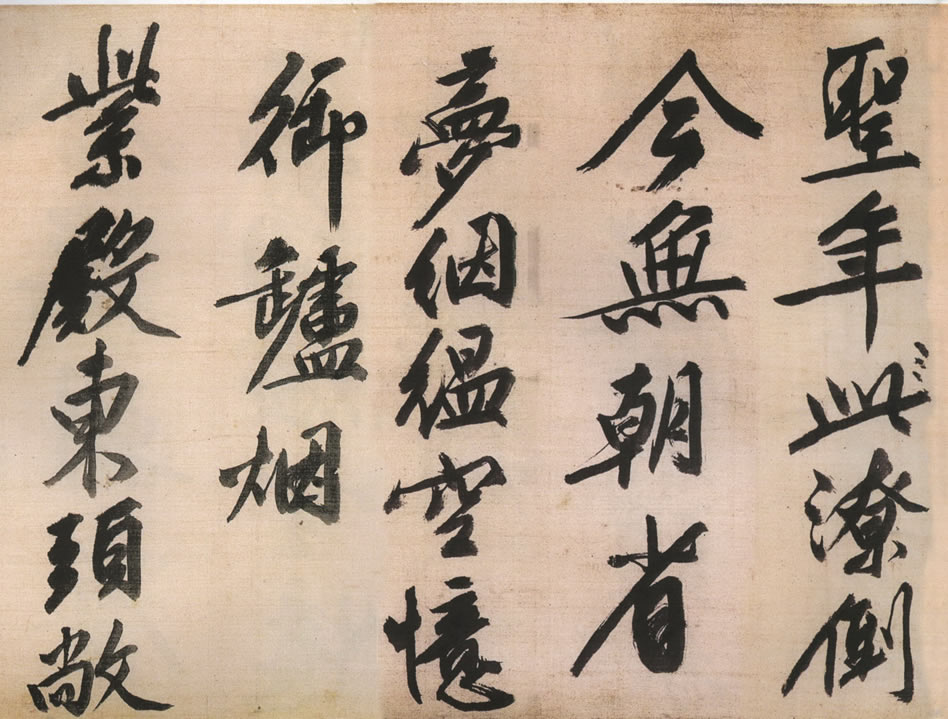 聖年此潦倒
今無朝省
夢絪縕空憶
御罏烟
紫殿東頭敞